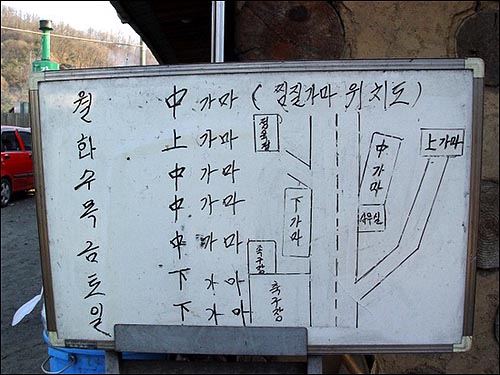 월 中 가마 (찜질가마 위치도)
화 上 가마
수 中 가마
목 中 가마
금 中 가마
토 下 가마
일 下 가마
정육점
中가마
上가마
下가마
사무실
족구장
축구장